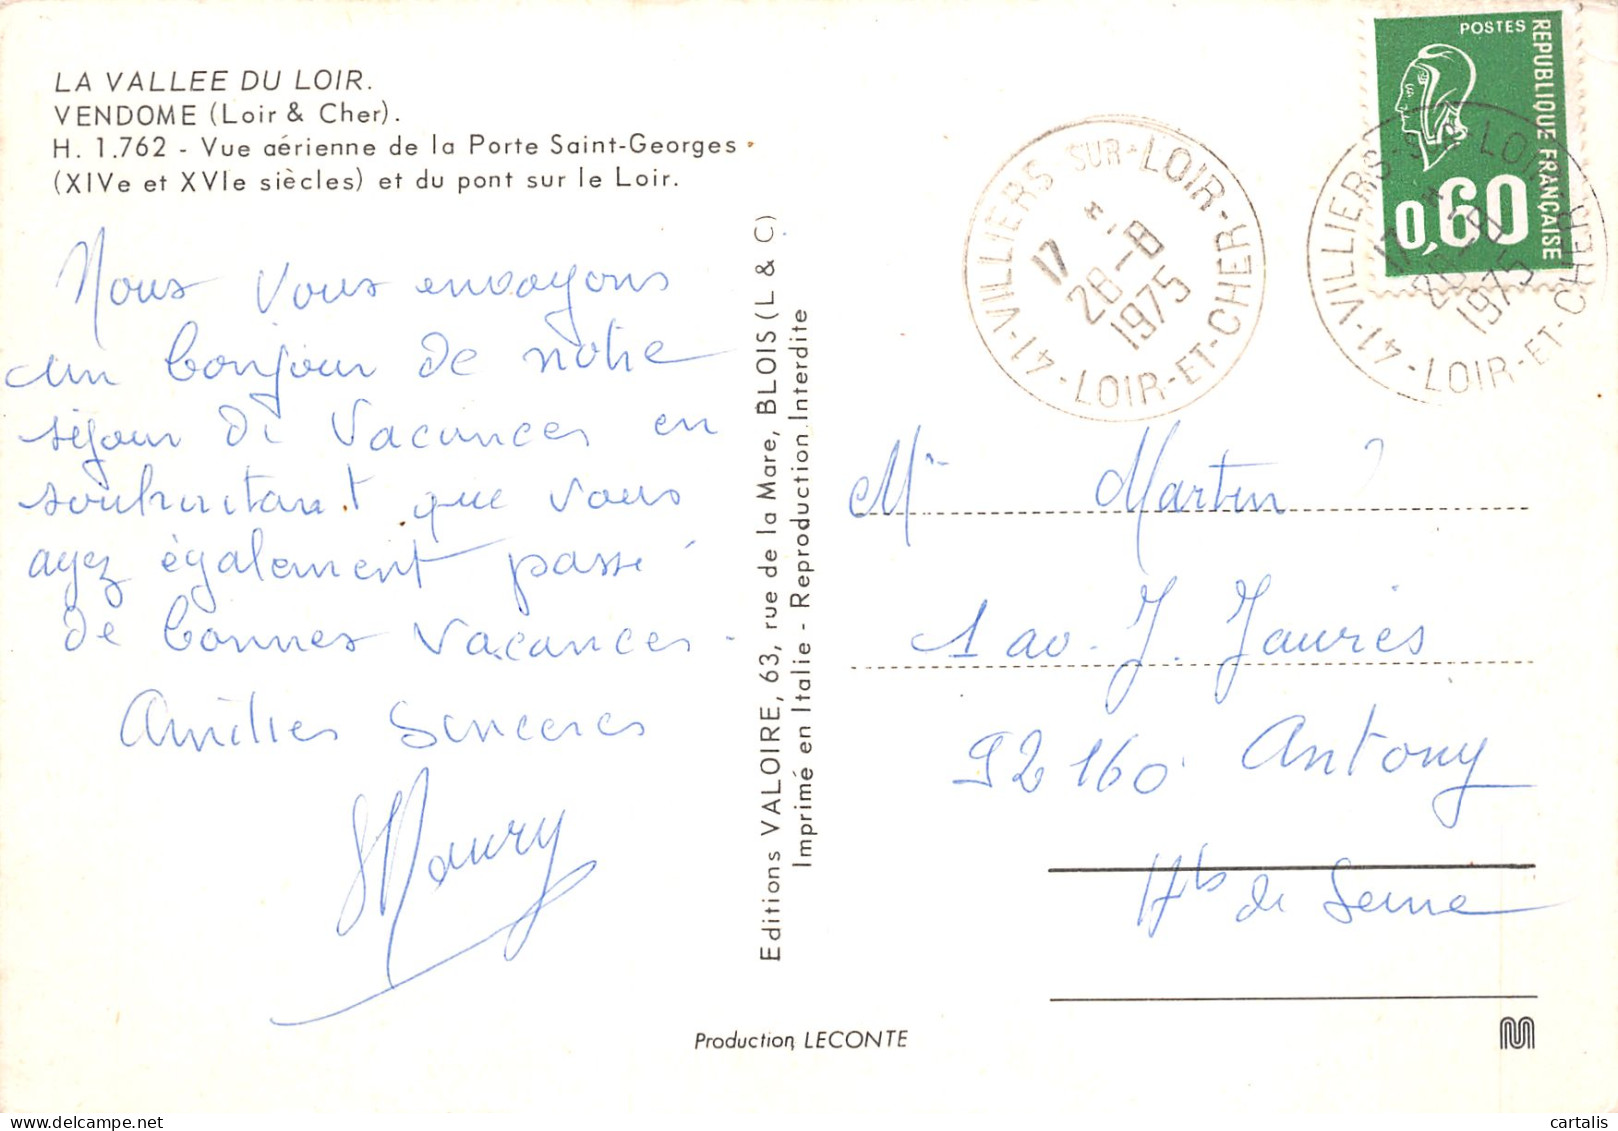 LA VALLEE DU LOIR.
VENDOME (Loir & Cher).
H. 1.762 - Vue aérienne de la Porte Saint-Georges
(XIVe et XVIe siècles) et du pont sur le Loir.
Nous vous envoyons
un bonjour de notre
séjour de vacances en
souhaitant que vous
ayez également passé
de bonnes vacances.
Amitiés sincères
Maury
Editions VALOIRE, 63, rue de la Mare, BLOIS (L & C)
Imprimé en Italie - Reproduction Interdite
POSTES
REPUBLIQUE FRANÇAISE
0,60
41-VILLIERS-SUR-LOIR-LOIR-ET-CHER
17 * 28-8
1975
41-VILLIERS-SUR-LOIR-LOIR-ET-CHER
17 * 28-8
1975
Mr Martin
1 av. J. Jaurès
92160 Antony
Hts de Seine
Production LECONTE
cartalis
delcampe.net